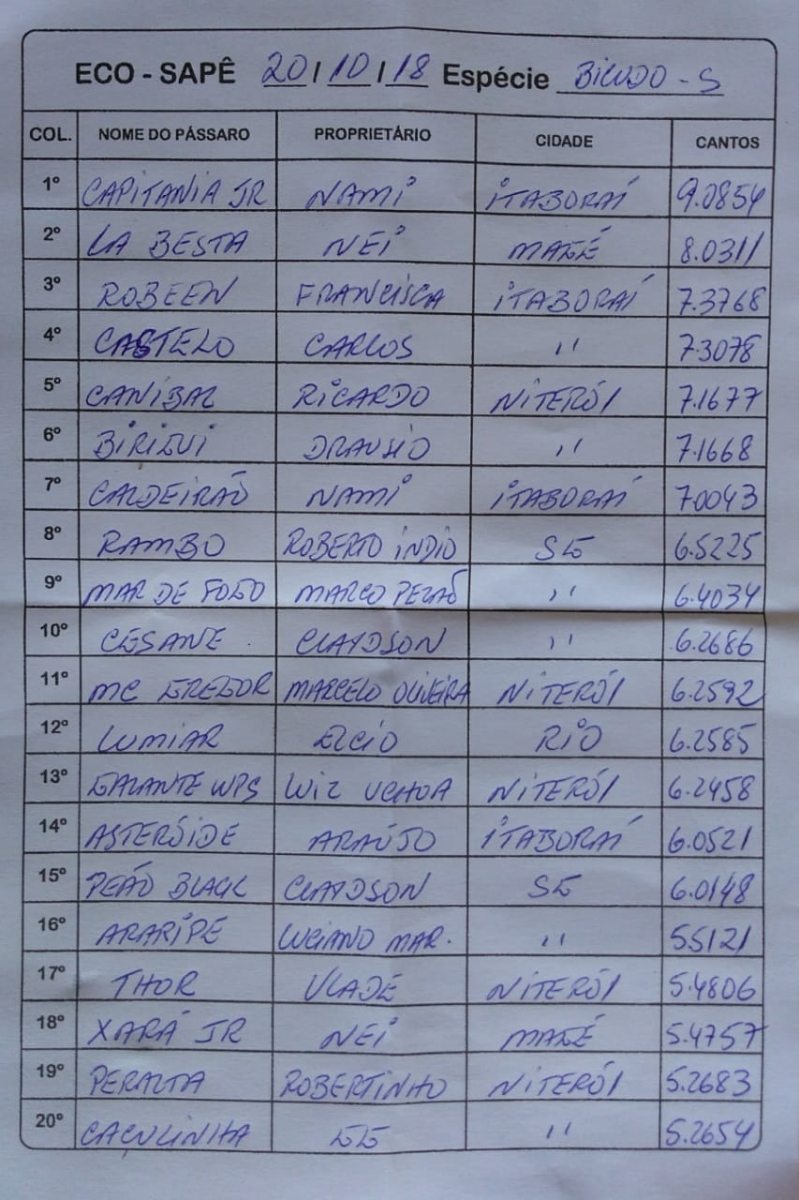 ECO - SAPÊ 20/10/18 Espécie BICUDO - S
COL. NOME DO PÁSSARO PROPRIETÁRIO CIDADE CANTOS
1º CAPITANIA JR NAMI ITABORAÍ 9.0854
2º LA BESTA NEI MAGÉ 8.0311
3º ROBEEN FRANCISCA ITABORAÍ 7.3768
4º CASTELO CARLOS '' 7.3078
5º CANIBAL RICARDO NITERÓI 7.1677
6º BIRIGUI DRAUSIO '' 7.1668
7º CALDEIRÃO NAMI ITABORAÍ 7.0043
8º RAMBO ROBERTO INDIO SG 6.5225
9º MAR DE FOGO MARCO PEZÃO '' 6.4034
10º CÉSANE CLAYDSON '' 6.2686
11º MC GREGOR MARCELO OLIVEIRA NITERÓI 6.2592
12º LUMIAR ELCIO RIO 6.2585
13º GALANTE WPS LUIZ UCHOA NITERÓI 6.2458
14º ASTERÓIDE ARAÚJO ITABORAÍ 6.0521
15º PEÃO BLACK CLAYDSON SG 6.0148
16º ARARIPE LUCIANO MAR. '' 5.5121
17º THOR VLADE NITERÓI 5.4806
18º XARÁ JR NEI MAGÉ 5.4757
19º PERALTA ROBERTINHO NITERÓI 5.2683
20º CAÇULINHA GG '' 5.2654